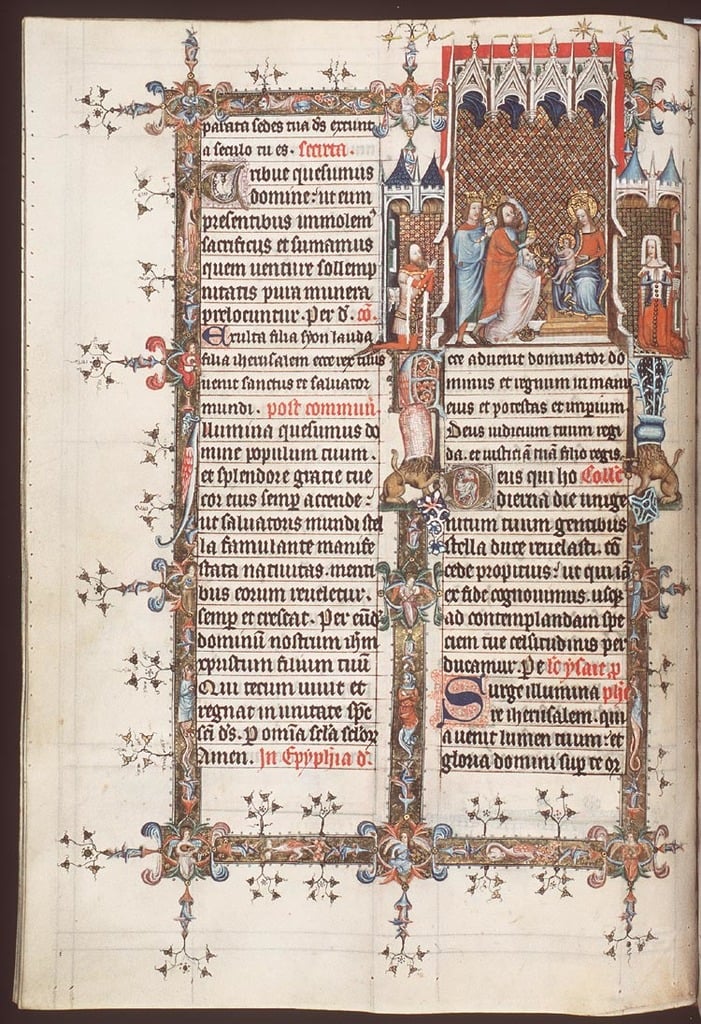 parata sedes tua ds extunc
a seculo tu es. secreta.
Tribue quesumus
domine: ut eum
presentibus immolem
sacrificijs et sumamus
quem venture sollemp
nitatis pura munera
prelocuntur. Per d. co.
Exulta filia syon lauda
filia iherusalem ecce rex tuus
venit sanctus et saluator
mundi. post commun.
Illumina quesumus do
mine populum tuum.
et splendore gratie tue
cor eius semp accende:
ut saluatoris mundi stel
la famulante manife
stata natiuitas. menti
bus eorum reueletur.
semp et crescat. Per eund
dominu nostrum ihm
xpristum filium tuu
Qui tecum uiuit et
regnat in unitate spc
sci ds. P omia scla sclor
Amen. In Epyphia d.
Ecce aduenit dominator do
minus et regnum in manu
eius et potestas et imperium
Deus iudicium tuum regi
da. et iusticia tua filio regis.
Deus qui ho Colle
dierna die unige
nitum tuum gentibus
stella duce reuelasti. co
cede propitius: ut qui ia
ex fide cognouimus. usq
ad contemplandam spe
ciem tue celsitudinis per
ducamur. Pe lo ysaie p
Surge illumina phe
re iherusalem. qui
a uenit lumen tuum: et
gloria domini sup te or